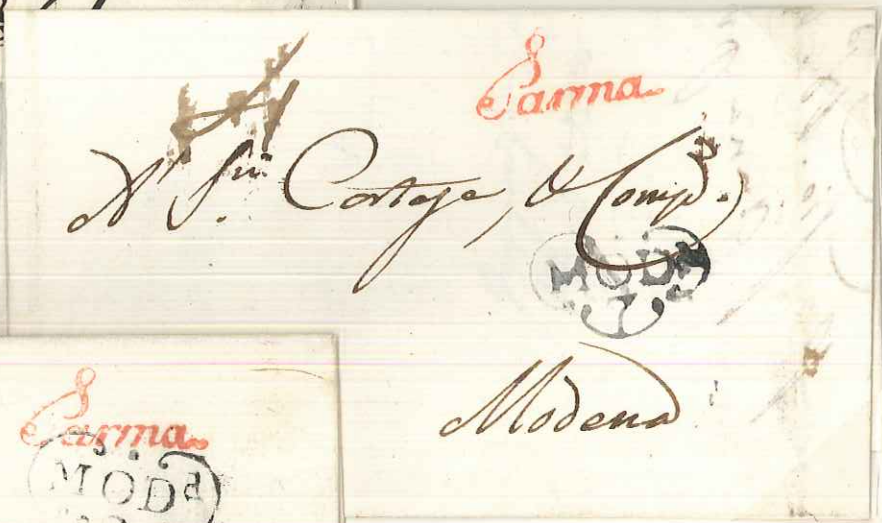 Parma
A' Sri. Cortese, & Comp.
MODª
7
Modena
Parma
MODª